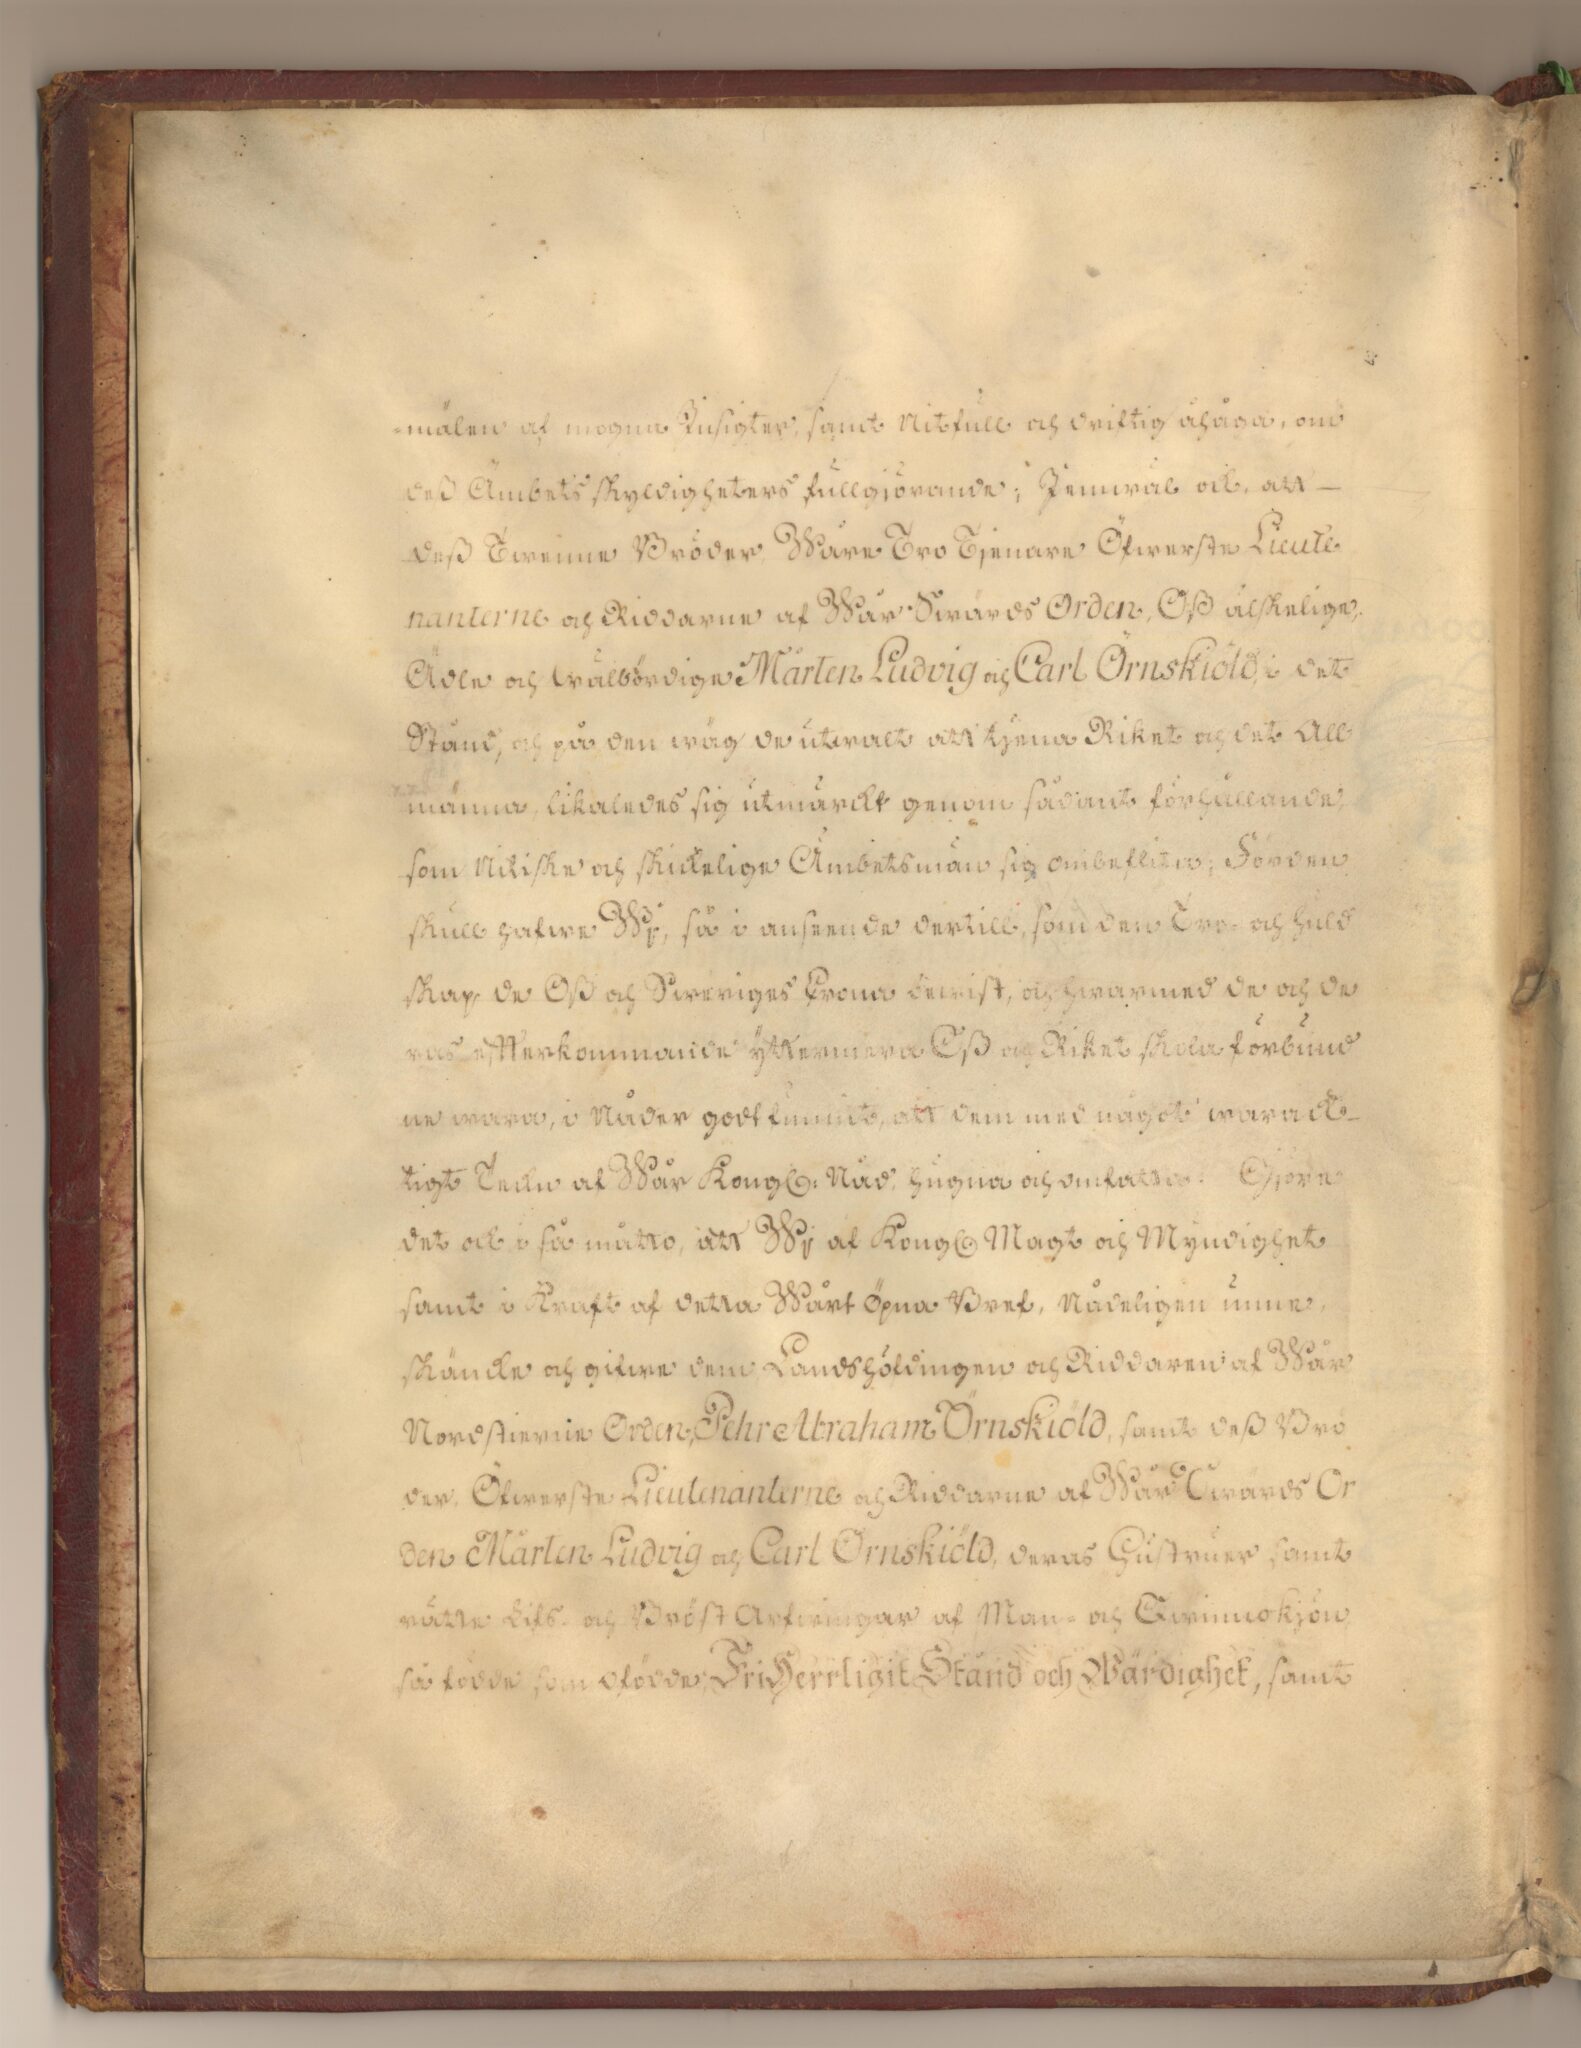 -målen af mogna Insigter, samt Nitfull och driftig åhåga, om
deß Ämbets skyldigheters fullgjörande; Jemwäl ock, att
deß Twenne Bröder, Wåre Tro Tjenare Öfwerste Lieute
nanterne och Riddarne af Wår Swärds Orden, Oß älskelige,
Ädle och wälbördige Mårten Ludvig och Carl Örnskiöld, i det
Stånd, och på den wäg de utwalt att tjena Riket och det All
männa, likaledes sig utmärckt genom sådant förhållande,
som Nitiske och skickelige Ämbetsmän sig ombeflita; Förden
skull hafwe Wij, så i anseende dertill, som den Tro- och huld
skap, de Oß och Sweriges Crona bewist, och hwarmed de och de
ras efterkommande ÿttermera Oß och Riket skola förbund
ne wara, i Nåder godt funnit, att dem med något warack-
tigt Teckn af Wår Kongl: Nåd, hugna och omfatta. Gjöre
det ock i så måtto, att Wij af Kongl Magt och Myndighet
samt i Kraft af detta Wårt Öpna Bref, Nådeligen unne,
skäncke och gifwe dem Landshöfdingen och Riddaren af Wår
Nordstierne Orden, Pehr Abraham Örnskiöld, samt deß Brö
der, Öfwerste Lieutenanterne och Riddarne af Wår Swärds Or
den Mårten Ludvig och Carl Örnskiöld, deras Hustruer samt
rätte Lifs- och Bröst Arfwingar af Man- och Qwinnokjön,
så födde som ofödde, FriHerrligit Stånd och Wärdighet, samt